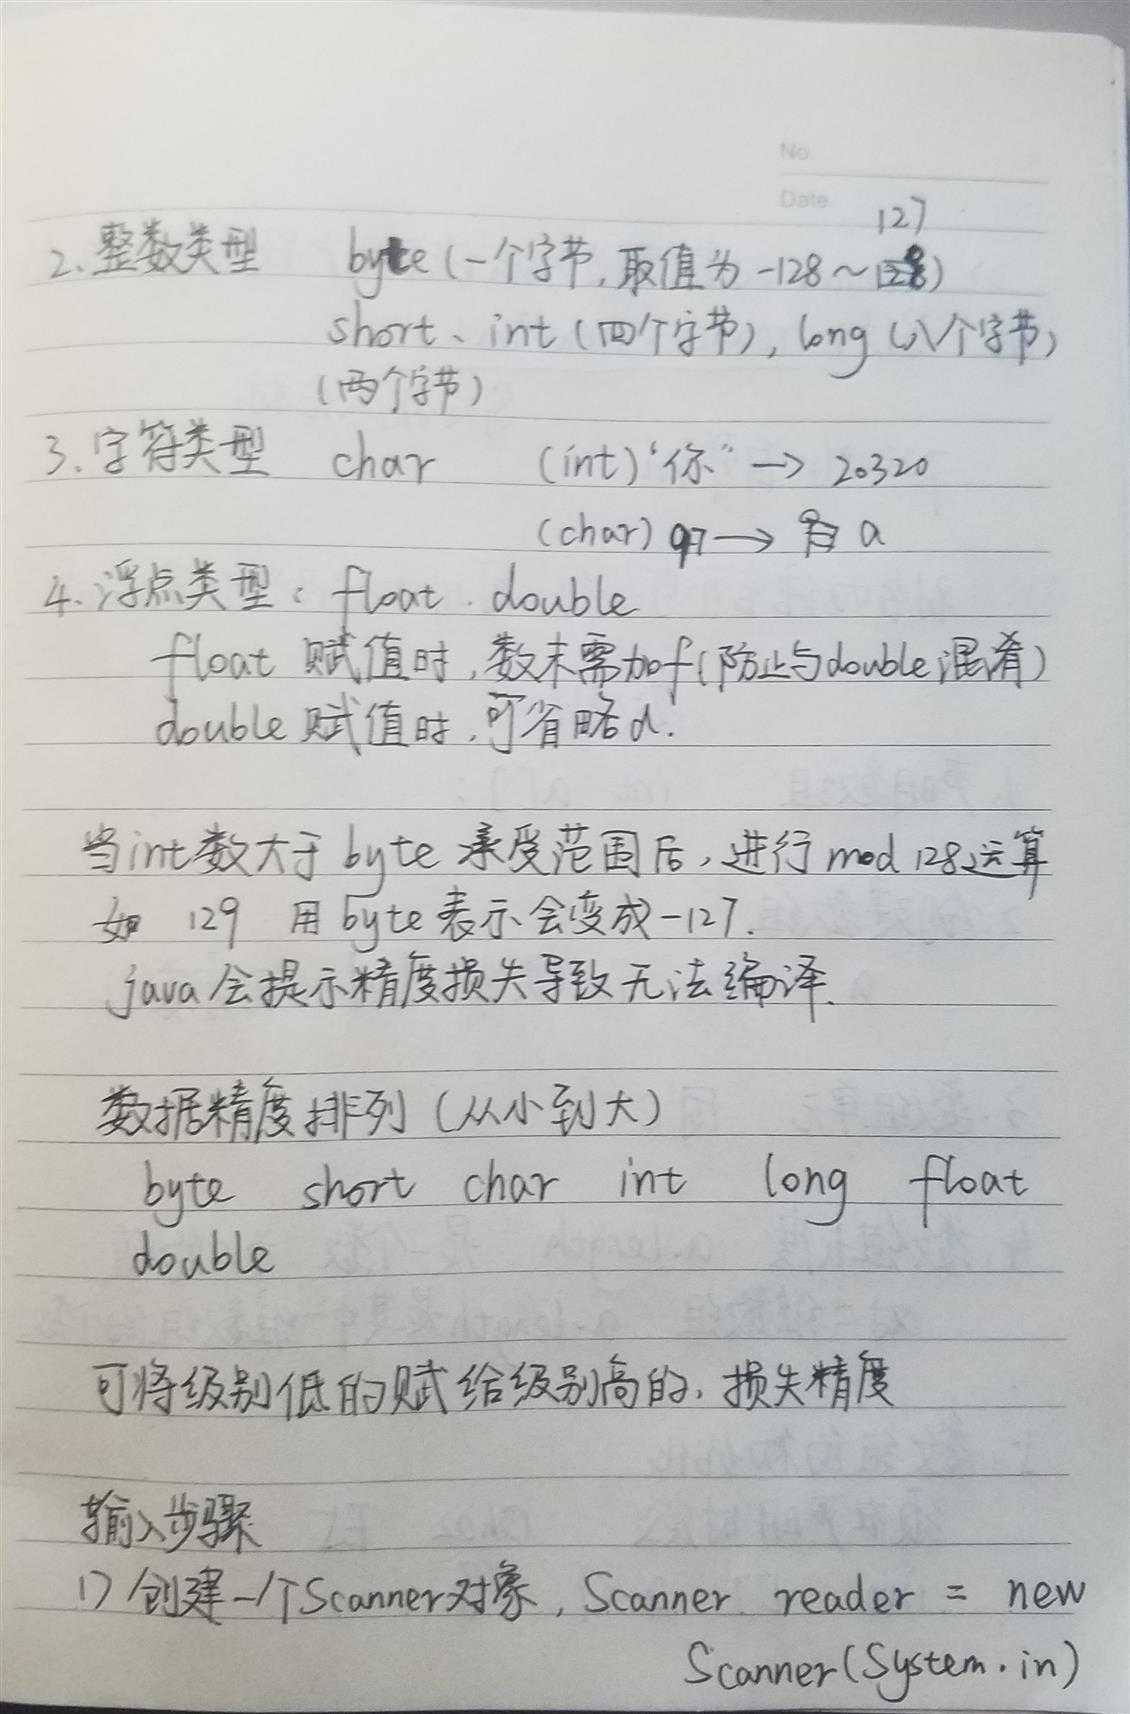 No.
Date
127
2. 整数类型 byte (一个字节, 取值为 -128 ~ 128)
short、int (四个字节), long (八个字节)
(两个字节)
3. 字符类型 char (int) ‘你” → 20320
(char) 97 → a
4. 浮点类型: float. double
float 赋值时, 数末需加f (防止与double混淆)
double 赋值时, 可省略d.
当int数大于 byte 承受范围后, 进行 mod 128运算
如 129 用 byte 表示会变成-127.
java会提示精度损失导致无法编译.
数据精度排列 (从小到大)
byte short char int long float
double
可将级别低的赋给级别高的, 损失精度
输入步骤
1) 创建一个Scanner对象, Scanner reader = new
Scanner(System.in)